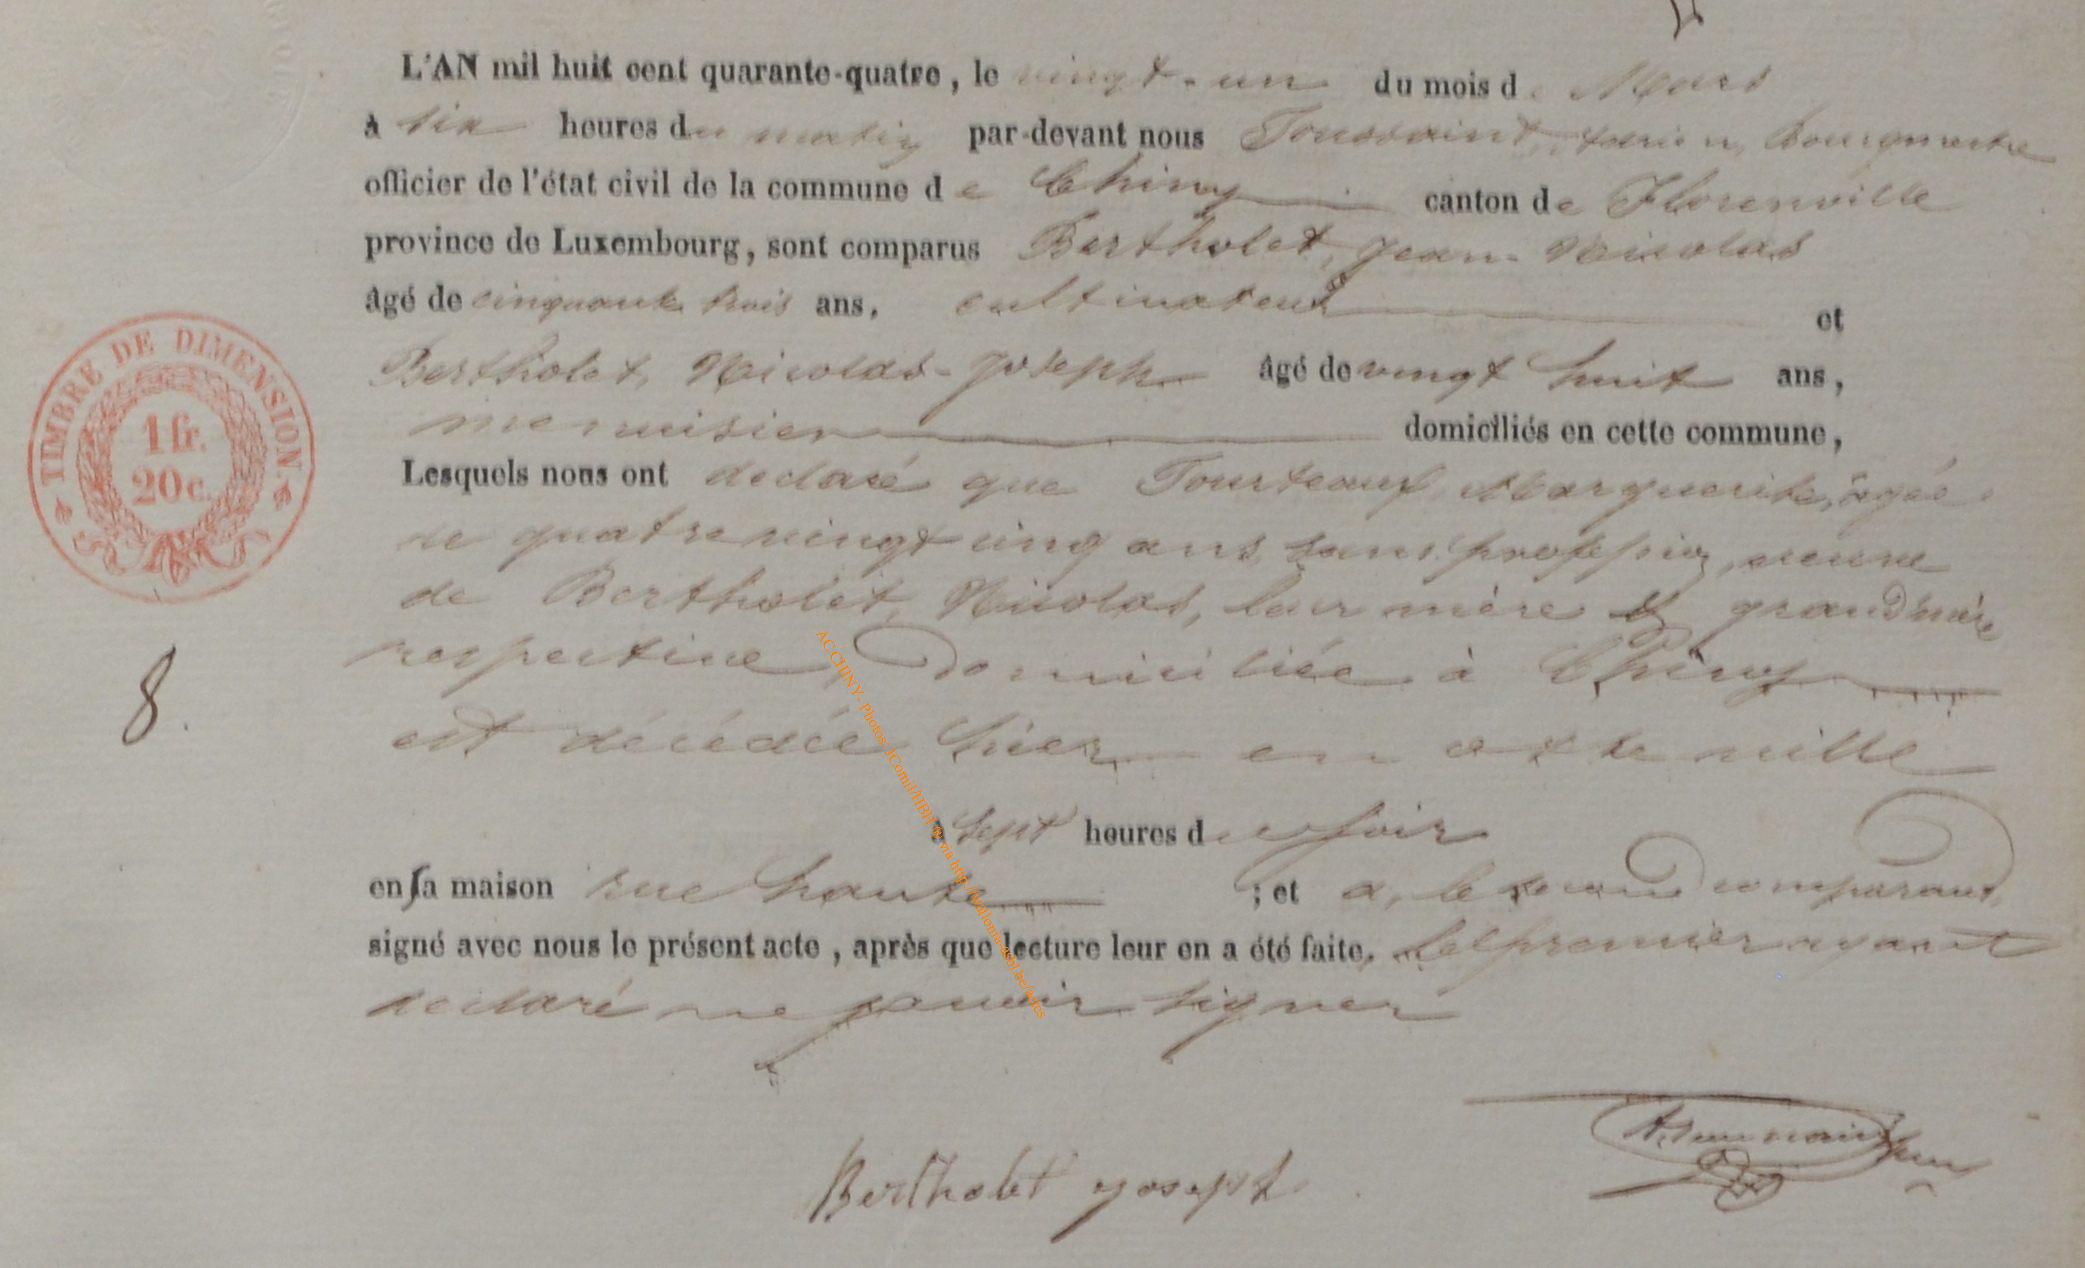 L'AN mil huit cent quarante-quatre, le vingt-un du mois de Mars
à six heures du matin par-devant nous Toussaint, bourgmestre
officier de l'état civil de la commune de Chiny canton de Florenville
province de Luxembourg, sont comparus Bertholet, Jean-Nicolas
âgé de cinquante trois ans, cultivateur et
Bertholet, Nicolas-Joseph âgé de vingt huit ans,
menuisier domiciliés en cette commune,
Lesquels nous ont declaré que Tourteaux, Marguerite, agée
de quatre vingt cinq ans, sans profession, veuve
de Bertholet, Nicolas, leur mère & grand'mère
respective, Domiciliée à Chiny
est décédée hier en cette ville
à sept heures du soir
en sa maison rue haute ; et a, le second comparant,
signé avec nous le présent acte, après que lecture leur en a été faite, le premier ayant
declaré ne pouvoir signer
TIMBRE DE DIMENSION.
1 fr.
20 c.
8.
Bertholet Joseph